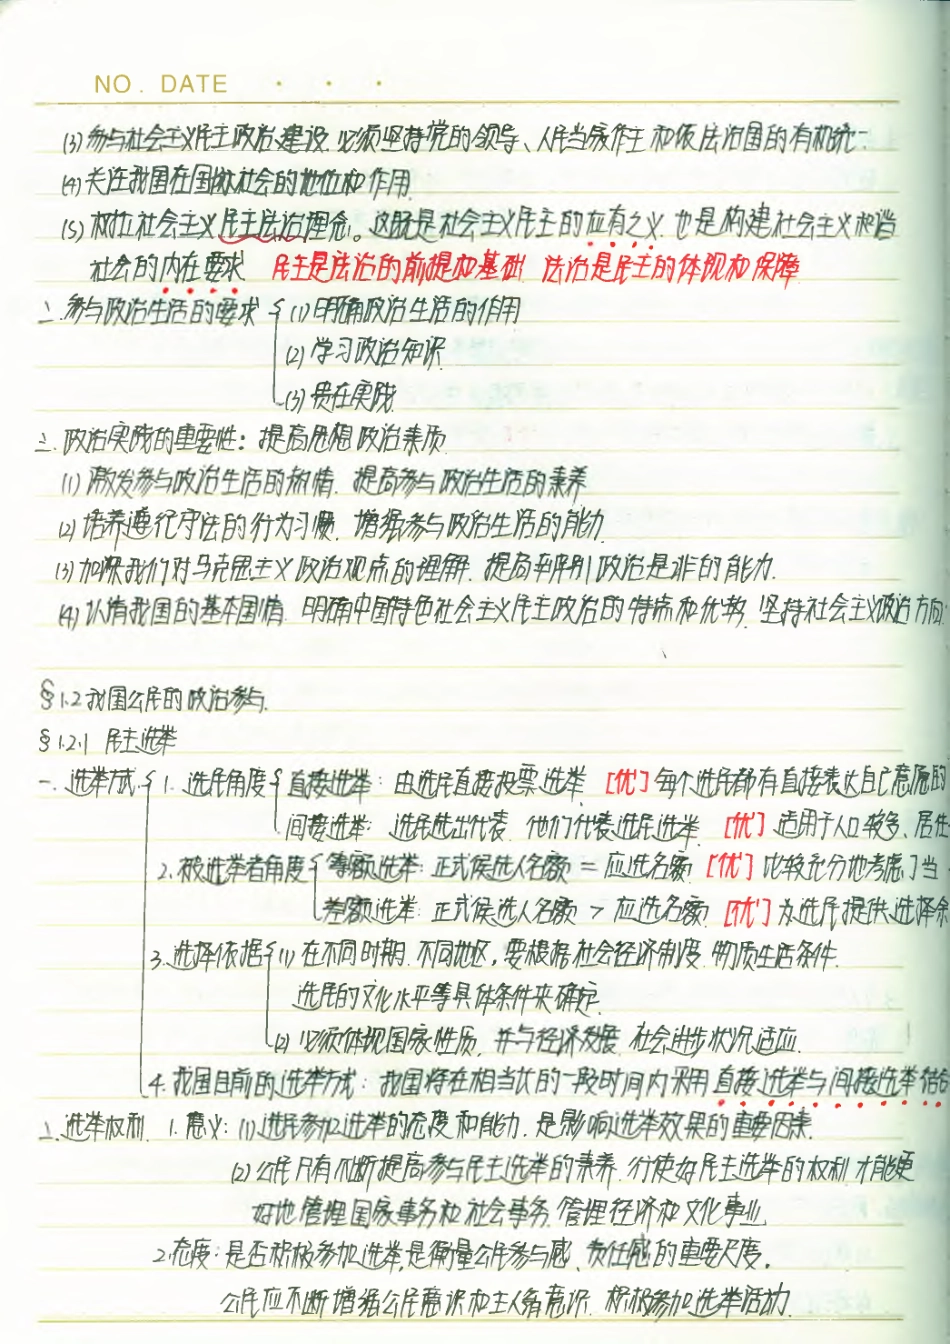 NO. DATE
(3) 参与社会主义民主政治建设 必须坚持党的领导、人民当家作主和依法治国的有机统一
(4) 关注我国在国际社会的地位和作用
(5) 树立社会主义民主法治理念。这既是社会主义民主的应有之义 也是构建社会主义和谐
社会的内在要求 民主是法治的前提和基础 法治是民主的体现和保障
二. 参与政治生活的要求 (1) 明确政治生活的作用
(2) 学习政治知识
(3) 贵在实践
三. 政治实践的重要性: 提高思想政治素质
(1) 激发参与政治生活的热情. 提高参与政治生活的素养
(2) 培养遵纪守法的行为习惯. 增强参与政治生活的能力
(3) 加深我们对马克思主义政治观点的理解. 提高辨别政治是非的能力.
(4) 认清我国的基本国情. 明确中国特色社会主义民主政治的特点和优势. 坚持社会主义政治方向
§1.2 我国公民的政治参与.
§1.2.1 民主选举
一. 选举方式 1. 选民角度 直接选举: 由选民直接投票选举 [优] 每个选民都有直接表达自己意愿的
间接选举: 选民选出代表. 他们代表选民选举. [优] 适用于人口较多、居住
2. 被选举者角度 等额选举: 正式候选人名额 = 应选名额 [优] 比较充分地考虑了当
差额选举: 正式候选人名额 > 应选名额 [优] 为选民提供选择余
3. 选择依据 (1) 在不同时期. 不同地区, 要根据社会经济制度. 物质生活条件.
选民的文化水平等具体条件来确定.
(2) 必须体现国家性质. 并与经济发展. 社会进步状况适应.
4. 我国目前的选举方式: 我国将在相当长的一段时间内采用直接选举与间接选举结合
二. 选举权利. 1. 意义: (1) 选民参加选举的态度和能力. 是影响选举效果的重要因素.
(2) 公民只有不断提高参与民主选举的素养. 行使好民主选举的权利 才能更
好地管理国家事务和社会事务. 管理经济和文化事业.
2. 态度: 是否积极参加选举, 是衡量公民参与感、责任感的重要尺度.
公民应不断增强公民意识和主人翁意识. 积极参加选举活动.